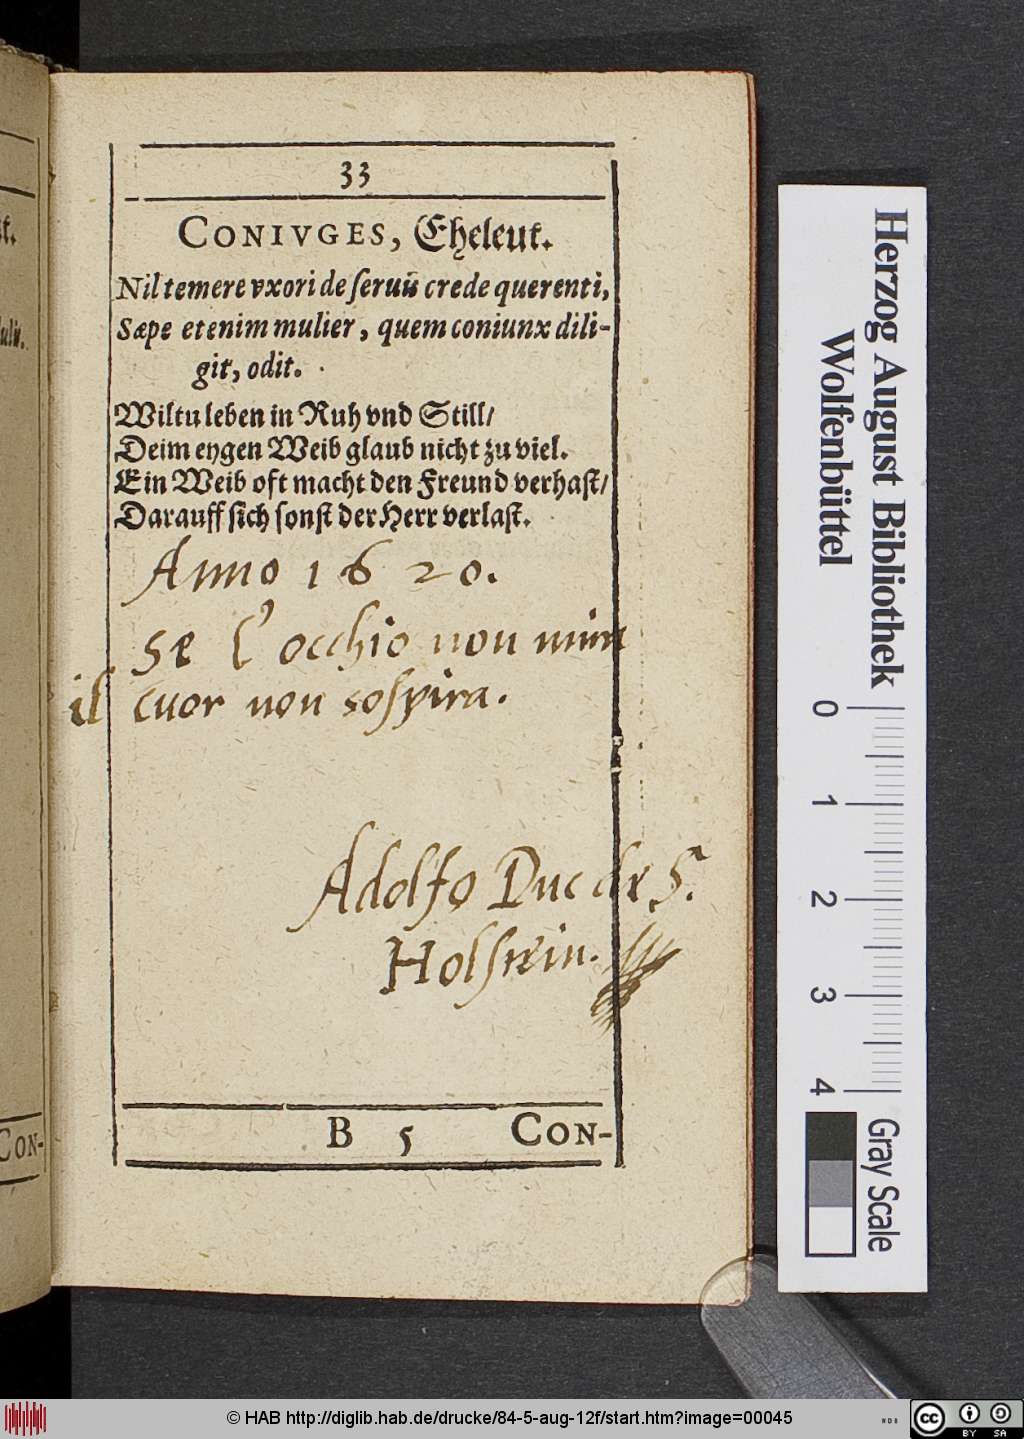 33
CONIVGES, Eheleut.
Nil temere vxori de seruû crede querenti,
Sæpe etenim mulier, quem coniunx dili-
git, odit.
Wiltu leben in Ruh vnd Still/
Deim eygen Weib glaub nicht zu viel.
Ein Weib oft macht den Freund verhast/
Darauff sich sonst der Herr verlast.
Anno 1620.
se l'occhio non mira
il cuor non sospira.
Adolfo Duc de S.
Holstein.
B 5 CON-
CON-
Herzog August Bibliothek
Wolfenbüttel
0 1 2 3 4
Gray Scale
© HAB http://diglib.hab.de/drucke/84-5-aug-12f/start.htm?image=00045
cc BY SA